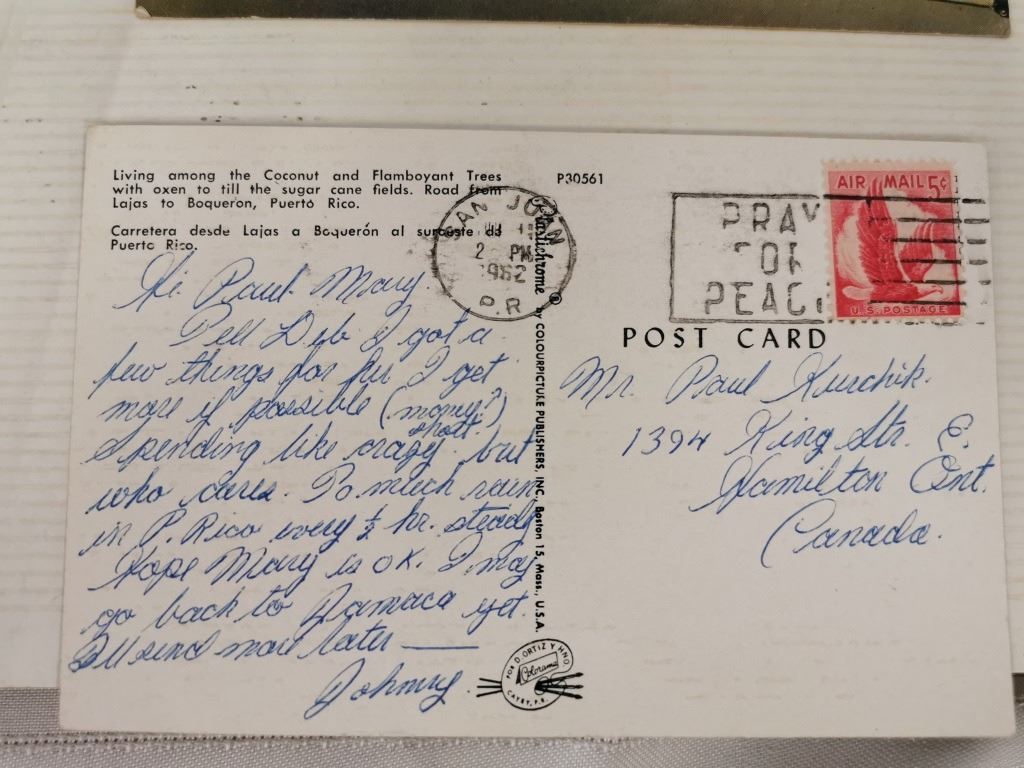 Living among the Coconut and Flamboyant Trees
with oxen to till the sugar cane fields. Road from
Lajas to Boqueron, Puerto Rico.
Carretera desde Lajas a Boquerón al suroeste de
Puerto Rico.
P30561
SAN JUAN
2 PM
1962
P.R
PRAY
FOR
PEACE
AIR MAIL 5¢
U.S. POSTAGE
Plastichrome ® by COLOURPICTURE PUBLISHERS, INC. Boston 15, Mass., U.S.A.
POST CARD
Hi Paul Mary.
Tell Deb I got a
few things for her I get
more if possible (money?)
short.
Spending like crazy. but
who cares. To much rain
in P. Rico every ½ hr. steady
Hope Mary is OK. I may
go back to Jamaca yet.
I'll send more later —
Johnny.
Mr. Paul Kurchik.
1394 King Str. E.
Hamilton Ont.
Canada.
POR D. ORTIZ Y HNO.
Colorama
CAYEY, P.R.